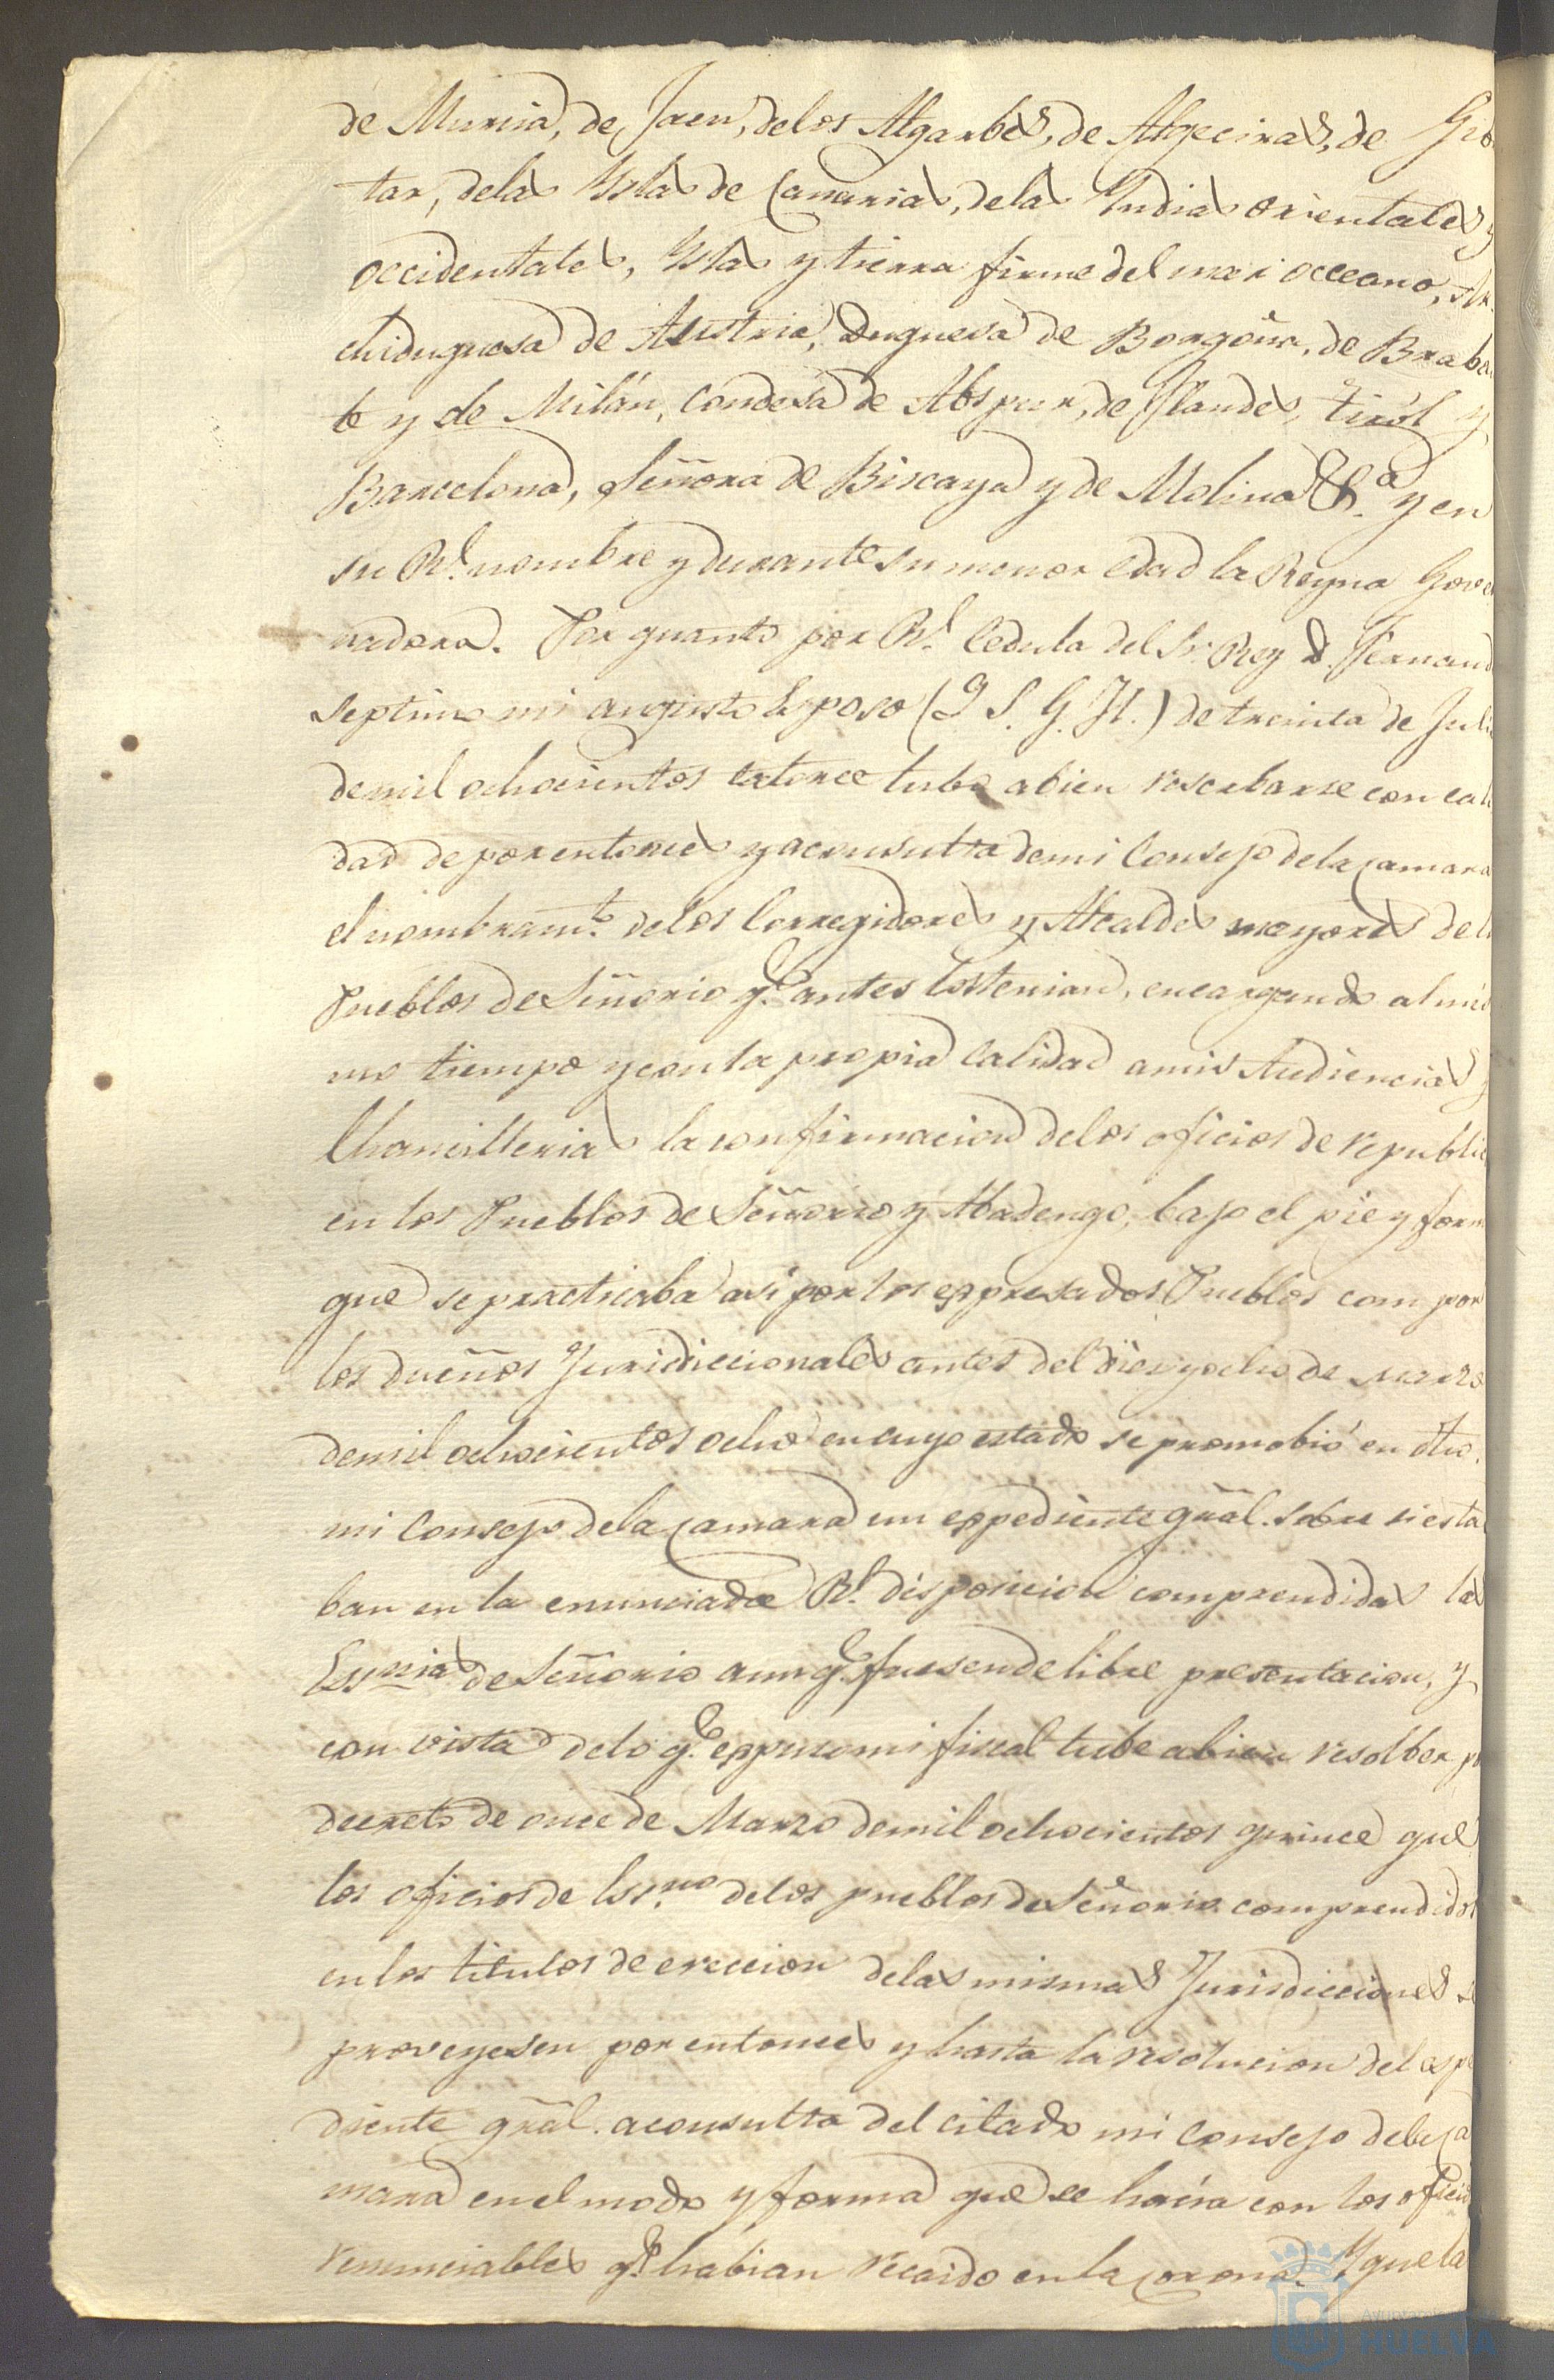 de Murcia, de Jaen, delos Algarbes, de Algeciras, de Gib
tar, delas Yslas de Canarias, delas Yndias orientales y
occidentales, Yslas y tierra firme del mar occeano, Ar
chiduquesa de Austria, Duquesa de Borgoña, de Braba
te y de Milán, Condesa de Abspur, de Flandes, tiról y
Barcelona, Señora de Biscaya y de Molina &.ª y en
su Rl. nombre y durante su menor edad la Reyna Gove
nadora. Por quanto por Rl. Cedula del Sr. Rey D. Fernand
septimo mi augusto Esposo (Q S. G. H.) de treinta de Juli
demil ochocientos catorce tubo abien reserbarse con cali
dad deporentonces yaconsulta demi Consejo dela Camara
el nombramto. delos Corregidores y Alcaldes mayores delo
Pueblos de Señorio qe. antes lostenian, encargando almis
mo tiempo yconla propia calidad amis Audiencias y
Chancillerias la confirmacion delos oficios de republic
en los Pueblos de Señorio y Abadengo, bajo el pie y form
que se practicaba asi por los eppresados Pueblos com por
los dueños Juridiccionales antes del diez yocho de marzo
demil ochocientos ocho en cuyo estado se promobió en dho.
mi Consejo dela Camara un eppediente gñal. sobre si esta
ban en la enunciada Rl. disposicion comprendidas las
Essnias de Señorio aunqe. fuesen de libre presentacion, y
con vista delo qe. eppuso mi fiscal tube abien resolber po
decreto de once de Marzo demil ochocientos quince que
los oficios de Escno. delos pueblos de Señorio comprendidos
en los titulos de ereccion delas mismas Jurisdicciones se
proveyesen por entonces y hasta la resolucion del espe
diente gñal. aconsulta del citado mi Consejo dela Ca
mara en el modo y forma que se hacia con los oficio
renunciables qe. habian recaido en la Corona. Y que la
AYUNTAMIENTO DE
HUELVA